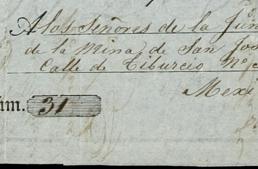 A los Señores de la Jun
de la Mina de San Jos
Calle de Tiburcio N.º
Mexi
úm. 31